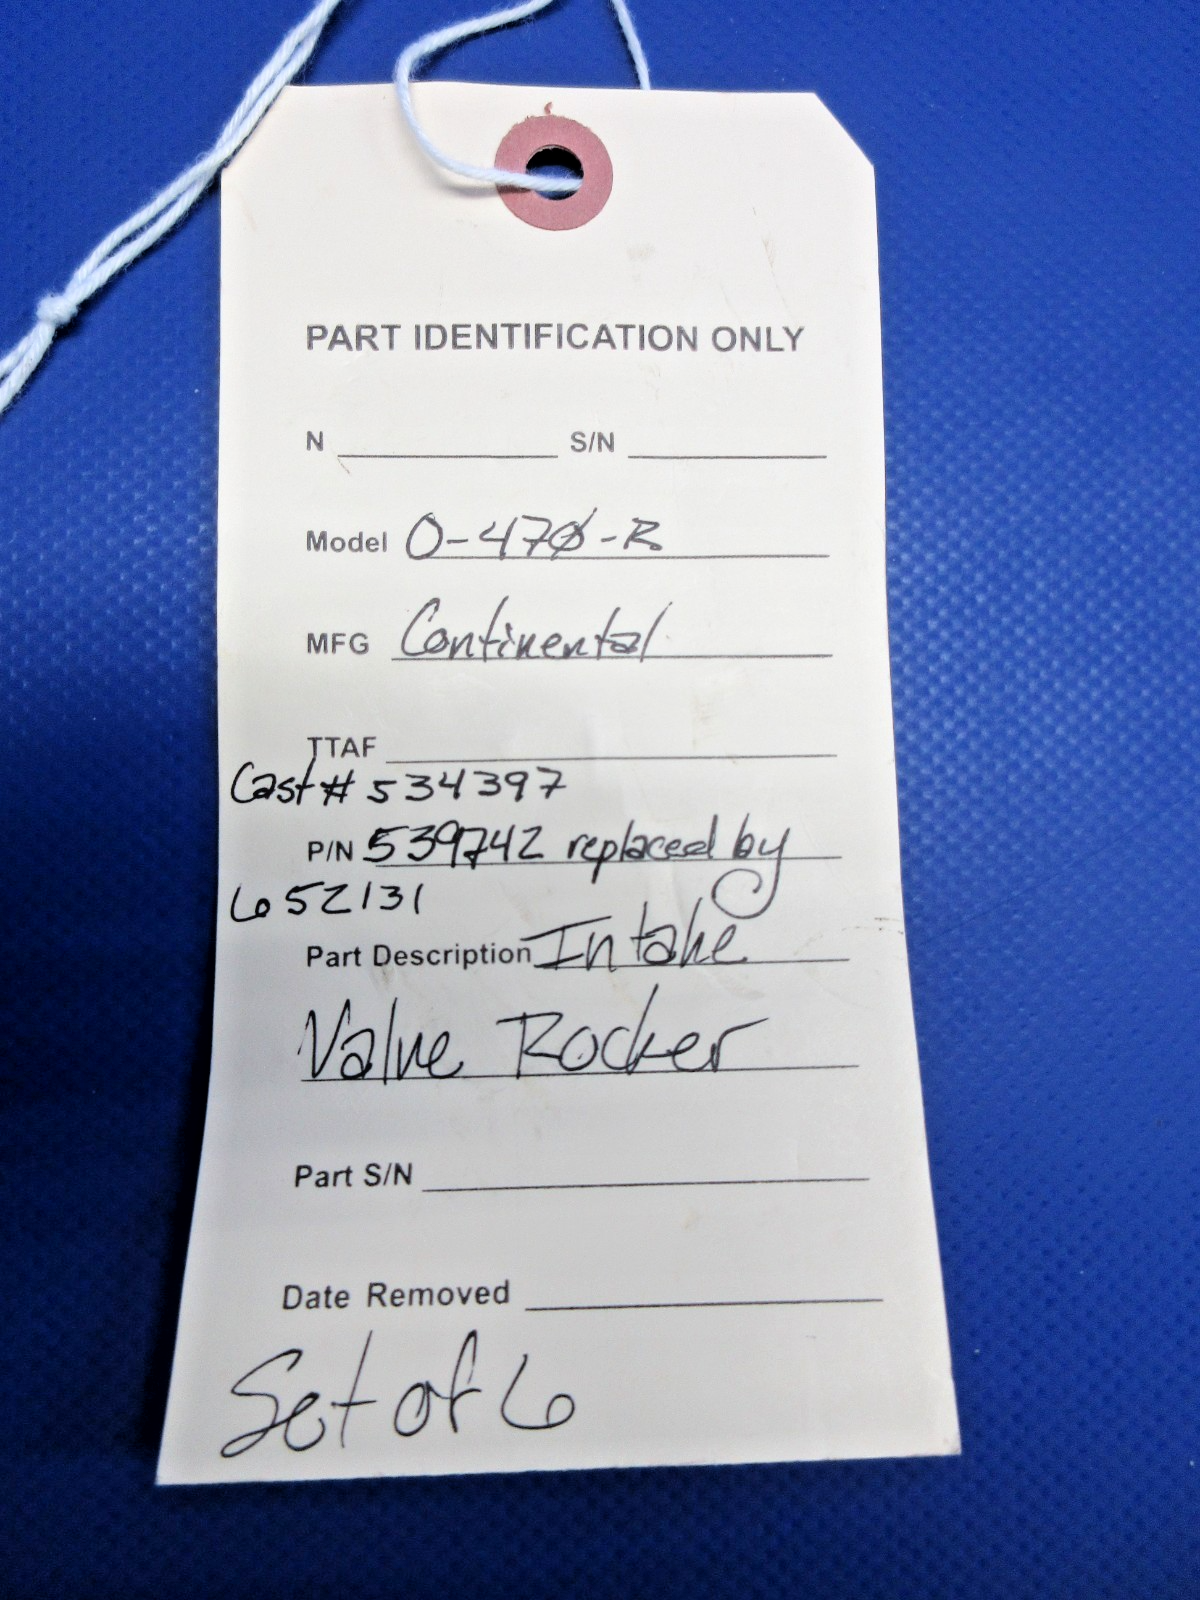 PART IDENTIFICATION ONLY
N S/N
Model O-470-R
MFG Continental
TTAF
Cast # 534397
P/N 539742 replaced by
652131
Part Description Intake
Valve Rocker
Part S/N
Date Removed
Set of 6